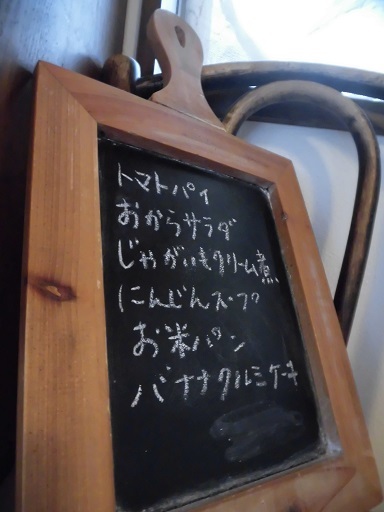 トマトパイ
おからサラダ
じゃがいもクリーム煮
にんじんスープ
お米パン
バナナクルミケーキ